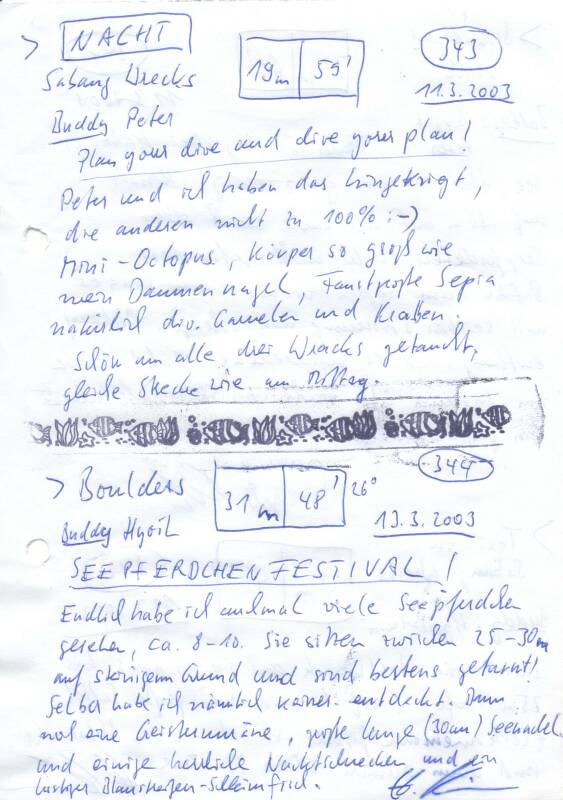 > NACHT
19m 59'
343
Sabang Wrecks
11.3.2003
Buddy Peter
Plan your dive and dive your plan!
Peter und ich haben das hingekriegt,
die anderen nicht zu 100% :-)
Mini-Octopus, Körper so groß wie
mein Daumennagel, Faustgroße Sepia
natürlich div. Garnelen und Krabben.
Schön um alle drei Wracks getaucht,
gleiche Strecke wie am Mittag.
344
> Boulders
31m 48' 26°
13.3.2003
Buddy
SEEPFERDCHENFESTIVAL!
Endlich habe ich mal viele Seepferdchen
gesehen, ca. 8-10. Sie sitzen zwischen 25-30m
auf steinigem Grund und sind bestens getarnt!
Selber habe ich nämlich keines entdeckt. Dann
noch eine Geistermuräne, große lange (30cm) Seenadel
und einige herrliche Nacktschnecken und ein
lustiger Blaustreifen-Schleimfisch.